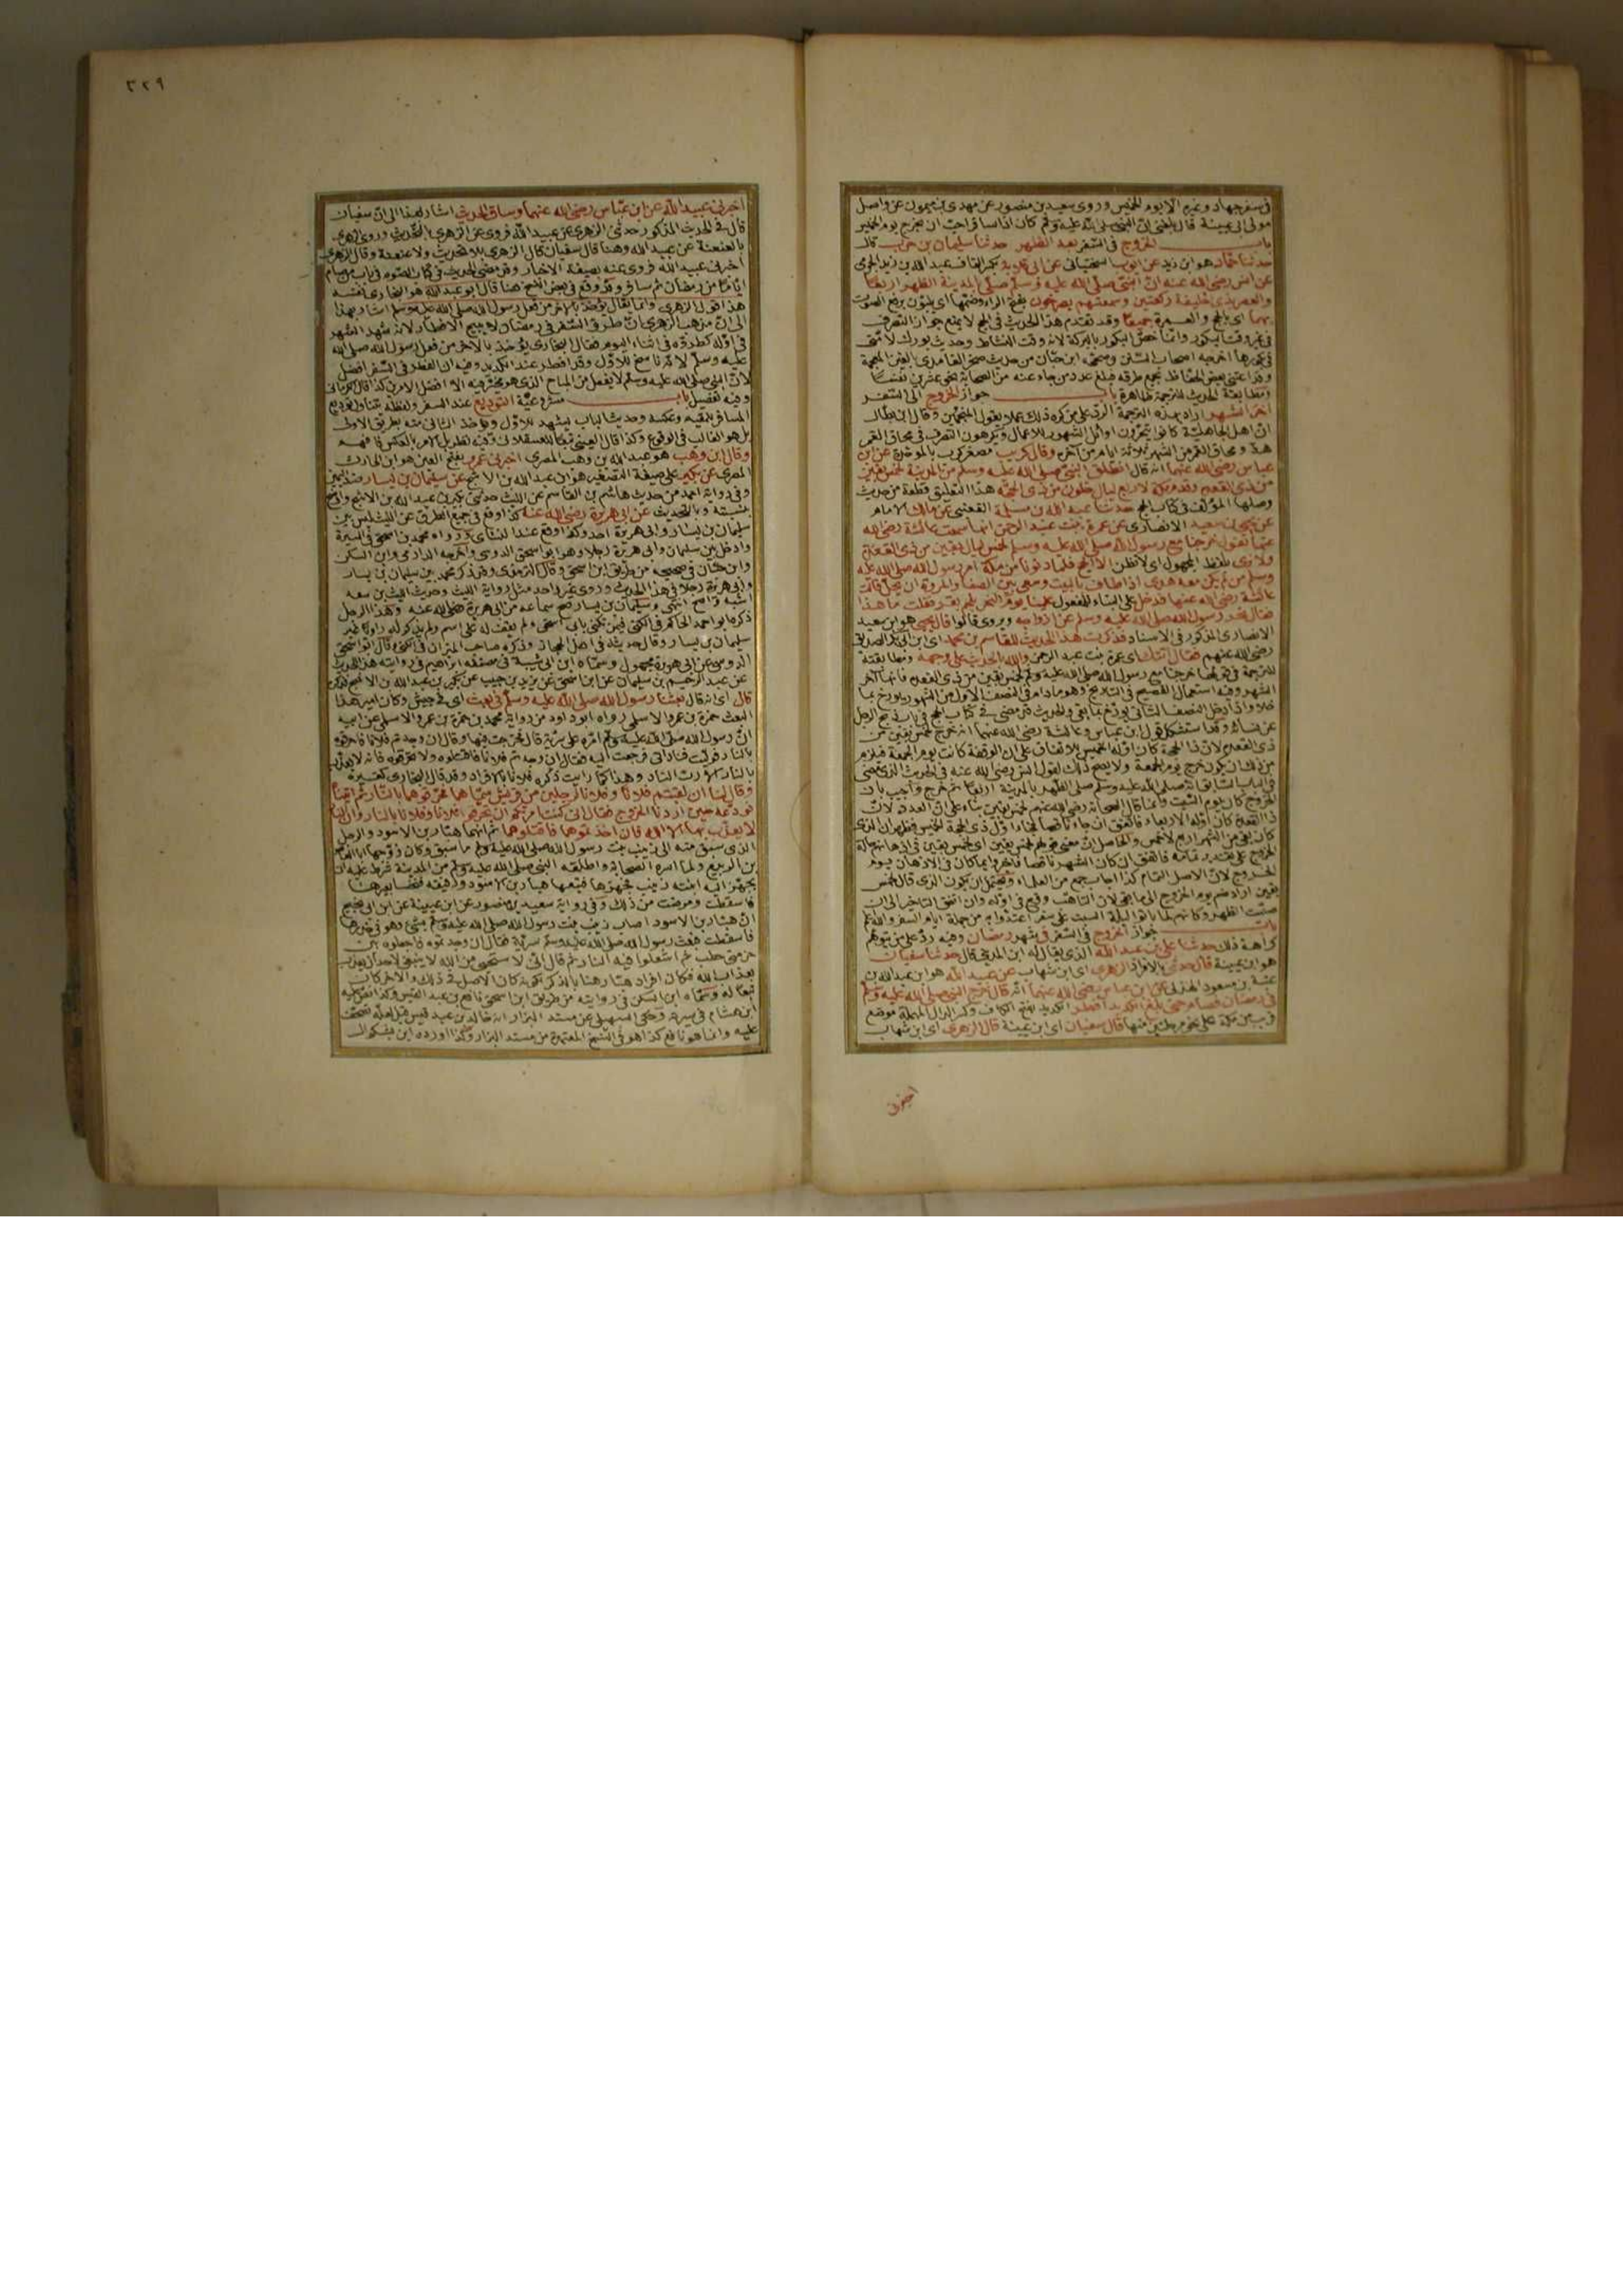 في سفر جهاد وغيره الا يوم الخميس وروى سعيد بن منصور عن مهدي بن ميمون عن واصل
مولى ابي عيينة قال بلغني ان النبي صلى الله عليه وسلم كان اذا سافر احب ان يخرج يوم الخميس
باب الخروج في السفر بعد الظهر حدثنا سليمان بن حرب قال
حدثنا حماد هو ابن زيد عن ايوب السختياني عن ابي قلابة بكسر القاف عبد الله بن زيد الجرمي
عن انس رضي الله عنه ان النبي صلى الله عليه وسلم صلى بالمدينة الظهر اربعا
والعصر بذي الحليفة ركعتين وسمعتهم يصرخون بفتح الراء وضمها اي يلبون برفع الصوت
بهما اي بالحج والعمرة جميعا وقد تقدم هذا الحديث في الحج لا يمنع جواز التصرف
في غير وقت البكور وانما خص البكور بالبركة لانه وقت النشاط وحديث بورك لامتي
في بكورها اخرجه اصحاب السنن وصححه ابن حبان من حديث صخر الغامدي بالغين المعجمة
وقد اعتنى بعض الحفاظ بجمع طرقه فبلغ عدد من جاء عنه من الصحابة نحو عشرين نفسا
ومطابقة الحديث للترجمة ظاهرة باب جواز الخروج الى السفر
آخر الشهر اراد بهذه الترجمة الرد على من كره ذلك عملا بقول المنجمين وقال ابن بطال
ان اهل الجاهلية كانوا يتحرون اوائل الشهور للاعمال ويكرهون التصرف في محاق القمر
هذا ومحاق القمر من الشهر ثلاثة ايام من آخره وقال كريب مصغر كرب بالموحدة عن ابن
عباس رضي الله عنهما انه قال انطلق النبي صلى الله عليه وسلم من المدينة لخمس بقين
من ذي القعدة وقدم مكة لاربع ليال خلون من ذي الحجة هذا التعليق قطعة من حديث
وصلها المؤلف في كتاب الحج حدثنا عبد الله بن مسلمة القعنبي عن مالك الامام
عن يحيى بن سعيد الانصاري عن عمرة بنت عبد الرحمن انها سمعت عائشة رضي الله
عنها تقول خرجنا مع رسول الله صلى الله عليه وسلم لخمس ليال بقين من ذي القعدة
ولا نرى بلفظ المجهول اي لا نظن الا الحج فلما دنونا من مكة امر رسول الله صلى الله عليه
وسلم من لم يكن معه هدي اذا طاف بالبيت وسعى بين الصفا والمروة ان يحل قالت
عائشة رضي الله عنها فدخل على البناء للمفعول علينا يوم النحر بلحم بقر فقلت ما هذا
فقال نحر رسول الله صلى الله عليه وسلم عن ازواجه ويروى قالوا قال يحيى هو ابن سعيد
الانصاري المذكور في الاسناد فذكرت هذا الحديث للقاسم بن محمد اي ابن ابي بكر الصديق
رضي الله عنهم فقال اتتك اي عمرة بنت عبد الرحمن والله بالحديث على وجهه ومطابقته
للترجمة في قولها خرجنا مع رسول الله صلى الله عليه وسلم لخمس بقين من ذي القعدة فانها آخر
الشهر وفيه استعمال الفصيح في التاريخ وهو مادام في النصف الاول من الشهر يؤرخ بما
خلا واذا دخل النصف الثاني يؤرخ بما بقي والحديث قد مضى في كتاب الحج في باب ذبح الرجل
عن نسائه وقد استشكل قول ابن عباس وعائشة رضي الله عنهما انه خرج لخمس بقين من
ذي القعدة لان ذا الحجة كان اوله الخميس للاتفاق على ان الوقفة كانت يوم الجمعة فيلزم
من ذلك ان يكون خرج يوم الجمعة ولا يصح ذلك لقول انس رضي الله عنه في الحديث الذي مضى
في الباب السابق انه صلى الله عليه وسلم صلى الظهر بالمدينة اربعا ثم خرج واجيب بان
الخروج كان يوم السبت وانما قال الصحابة رضي الله عنهم لخمس بقين بناء على العدد لان
ذا القعدة كان اوله الاربعاء فاتفق ان جاء ناقصا فجاء اول ذي الحجة الخميس فظهر ان الذي
كان بقي من الشهر اربع لا خمس والحاصل ان معنى قولهم لخمس بقين اي لخمس بقين في اذهانهم حالة
الخروج على تقدير تمامه فاتفق ان كان الشهر ناقصا فاخبروا بما كان في الاذهان يوم
الخروج لان الاصل التمام كذا اجاب جمع من العلماء ويحتمل ان يكون الذي قال لخمس
بقين اراد ضم يوم الخروج الى ما بقي لان التاهب وقع في اوله وان اتفق التاخير الى ان
صليت الظهر وكانهم لما باتوا ليلة السبت على سفر اعتدوا به من جملة ايام السفر والله اعلم
باب جواز الخروج في السفر في شهر رمضان وفيه رد على من يتوهم
كراهة ذلك حدثنا علي بن عبد الله الذي يقال له ابن المديني قال حدثنا سفيان
هو ابن عيينة قال حدثني بالافراد الزهري اي ابن شهاب عن عبيد الله هو ابن عبد الله بن
عتبة بن مسعود الهذلي عن ابن عباس رضي الله عنهما انه قال خرج النبي صلى الله عليه وسلم
في رمضان فصام حتى بلغ الكديد افطر الكديد بفتح الكاف وكسر الدال المهملة موضع
قريب من مكة على نحو مرحلتين منها قال سفيان اي ابن عيينة قال الزهري اي ابن شهاب
اخبرني
٣٢٩
اخبرني عبيد الله عن ابن عباس رضي الله عنهما وساق الحديث اشار بهذا الى ان سفيان
قال في الحديث المذكور حدثني الزهري عن عبيد الله فروى عن الزهري بالتحديث وروى الزهري
بالعنعنة عن عبيد الله وهنا قال سفيان قال الزهري بلا تحديث ولا عنعنة وقال الزهري
اخبرني عبيد الله فروى عنه بصيغة الاخبار وقد مضى الحديث في كتاب الصوم في باب من صام
اياما من رمضان ثم سافر وقد وقع في بعض النسخ هنا قال ابو عبد الله هو البخاري نفسه
هذا قول الزهري وانما يقال يؤخذ بالآخر من فعل رسول الله صلى الله عليه وسلم اشار بهذا
الى ان مذهب الزهري ان طرو السفر في رمضان لا يبيح الافطار لانه شهد الشهر
في اوله كطروه في اثناء اليوم فقال البخاري يؤخذ بالآخر من فعل رسول الله صلى الله
عليه وسلم لانه ناسخ للاول وقد افطر عند الكديد وفيه ان الفطر في السفر افضل
لان النبي صلى الله عليه وسلم لا يفعل من المباح الذي هو مخير فيه الا افضل الامرين كذا قال الكرماني
وفيه تفصيل باب مشروعية التوديع عند السفر ولفظه يتناول توديع
المسافر للمقيم وعكسه وحديث الباب يشهد للاول ويؤخذ الثاني منه بطريق الاولى
بل هو الغالب في الوقوع وكذا قال العيني تبعا للعسقلاني وفيه نظر بل الامر بالعكس فافهمه
وقال ابن وهب هو عبد الله بن وهب المصري اخبرني عمرو بفتح العين هو ابن الحارث
المصري عن بكير على صيغة التصغير هو ابن عبد الله بن الاشج عن سليمان بن يسار ضد اليمين
وفي رواية احمد من حديث هاشم بن القاسم عن الليث حدثني بكير بن عبد الله بن الاشج
بنسبته وبالتحديث عن ابي هريرة رضي الله عنه كذا وقع في جميع الطرق عن الليث ليس بين
سليمان بن يسار وابي هريرة احد وكذا وقع عند النسائي ورواه محمد بن اسحق في السيرة
وادخل بين سليمان وابي هريرة رجلا وهو ابو اسحق الدوسي واخرجه الدارمي وابن السكن
وابن حبان في صحيحه من طريق ابن اسحق وقال الترمذي وقد ذكر محمد بن سليمان بن يسار
وابي هريرة رجلا في هذا الحديث وروى غير واحد مثل رواية الليث وحديث الليث بن سعد
اشبه واصح انتهى وسليمان بن يسار صح سماعه من ابي هريرة رضي الله عنه وهذا الرجل
ذكره ابو احمد الحاكم في الكنى فيمن تكنى بابي اسحق ولم يقف له على اسم ولم يذكر له راويا غير
سليمان بن يسار وقال حديثه في اهل الحجاز وذكره صاحب الميزان في الكنى وقال ابو اسحق
الدوسي عن ابي هريرة مجهول وسماه ابن ابي شيبة في مصنفه ابراهيم في روايته هذا الحديث
عن عبد الرحيم بن سليمان عن ابن اسحق عن يزيد بن حبيب عن بكير بن عبد الله بن الاشج فذكره
قال اي انه قال بعثنا رسول الله صلى الله عليه وسلم في بعث اي في جيش وكان امير هذا
البعث حمزة بن عمرو الاسلمي رواه ابو داود من رواية محمد بن حمزة بن عمرو الاسلمي عن ابيه
ان رسول الله صلى الله عليه وسلم امره على سرية قال فخرجت فيها وقال ان وجدتم فلانا فاحرقوه
بالنار فوليت فناداني فرجعت اليه فقال ان وجدتم فلانا فاقتلوه ولا تحرقوه فانه لا يعذب
بالنار الا رب النار وهذا كما رايت ذكره فلانا بالافراد وقد قال البخاري كغيره
وقال لنا ان لقيتم فلانا وفلانا لرجلين من قريش سماهما فحرقوهما بالنار ثم اتيناه
نودعه حين اردنا الخروج فقال اني كنت امرتكم ان تحرقوا فلانا وفلانا بالنار وان النار
لا يعذب بها الا الله فان اخذتموهما فاقتلوهما ثم انهما هبار بن الاسود والرجل
الذي سبق منه الى زينب بنت رسول الله صلى الله عليه وسلم ما سبق وكان زوجها ابا العاص
بن الربيع ولما اسره الصحابة واطلقه النبي صلى الله عليه وسلم من المدينة شرط عليه ان
يجهز اليه ابنته زينب فجهزها فتبعها هبار بن الاسود ورفيقه فنخسا بعيرها
فاسقطت ومرضت من ذلك وفي رواية سعيد بن منصور عن ابن عيينة عن ابن ابي نجيح
ان هبار بن الاسود اصاب زينب بنت رسول الله صلى الله عليه وسلم بشيء وهو في خدرها
فاسقطت فبعث رسول الله صلى الله عليه وسلم سرية فقال ان وجدتموه فاجعلوه بين
حزمتي حطب ثم اشعلوا فيه النار ثم قال اني لاستحيي من الله لا ينبغي لاحد ان يعذب
بعذاب الله فكان افراد هبار هنا بالذكر لكونه كان الاصل في ذلك والآخر كان
تبعا له وسماه ابن السكن في روايته من طريق ابن اسحق نافع بن عبد القيس وكذا نص عليه
ابن هشام في سيرته وحكى السهيلي عن مسند البزار انه خالد بن عبد قيس فلعله تصحف
عليه وانما هو نافع كذا هو في النسخ المعتمدة من مسند البزار وكذا اورده ابن بشكوال